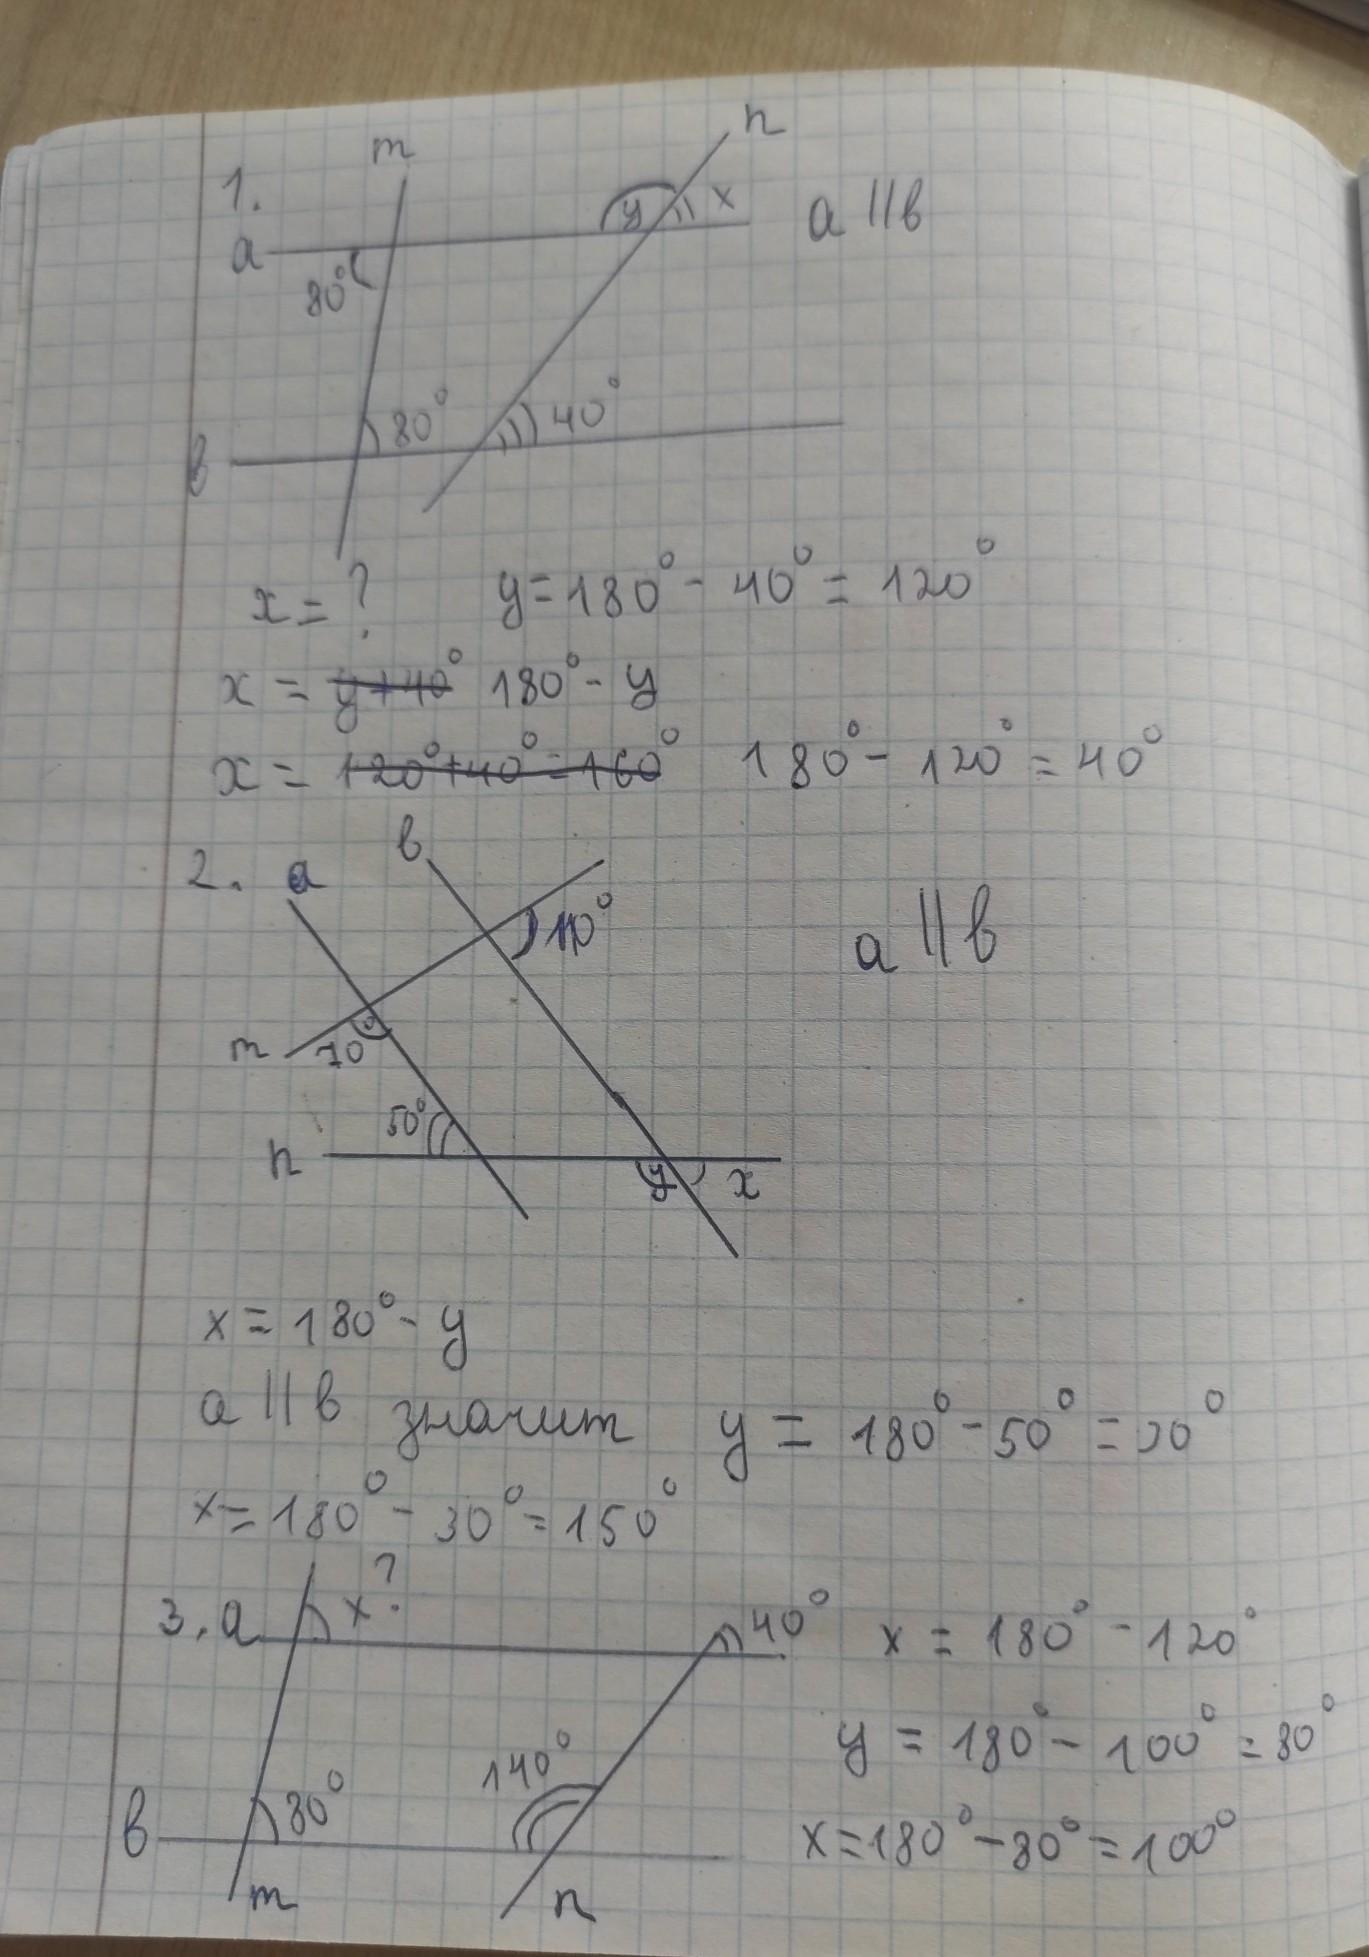 m n
1.
a y x a || в
80°
80° 40°
в
x = ? y = 180° - 40° = 120°
x = y + 40° 180° - y
x = 120° + 40° = 160° 180° - 120° = 40°
в
2. a
110° a || в
m 70°
50°
n y x
x = 180° - y
a || в значит y = 180° - 50° = 30°
x = 180° - 30° = 150°
3. a x? 40° x = 180° - 120°
y = 180° - 100° = 80°
140°
в 80° x = 180° - 80° = 100°
m n